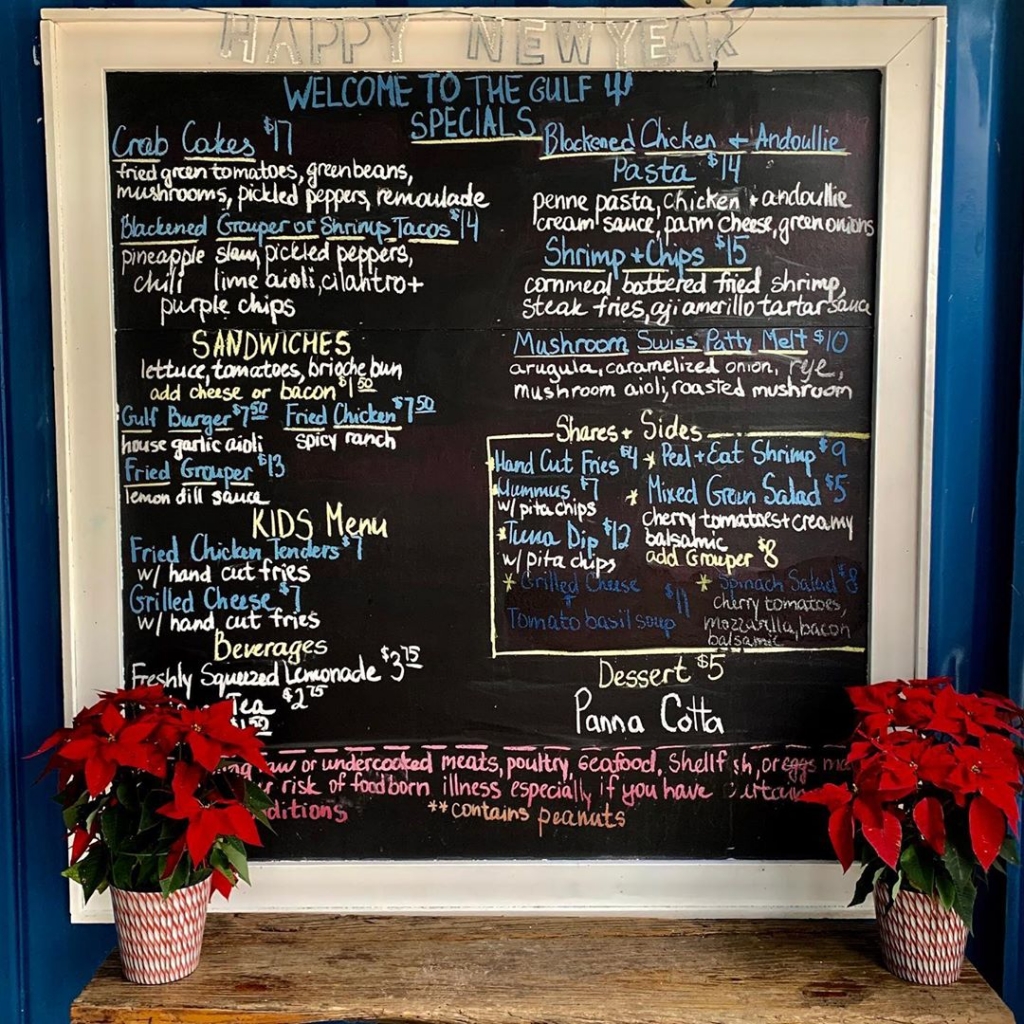 HAPPY NEW YEAR
WELCOME TO THE GULF
SPECIALS
Crab Cakes $17
fried green tomatoes, greenbeans,
mushrooms, pickled peppers, remoulade
Blackened Grouper or Shrimp Tacos $14
pineapple slaw, pickled peppers,
chili lime aioli, cilantro +
purple chips
Blackened Chicken + Andoullie
Pasta $14
penne pasta, chicken + andoullie
cream sauce, parm cheese, green onions
Shrimp + Chips $15
cornmeal battered fried shrimp,
steak fries, aji amerillo tartar sauce
Mushroom Swiss Patty Melt $10
arugula, caramelized onion, rye,
mushroom aioli, roasted mushroom
SANDWICHES
lettuce, tomatoes, brioche bun
add cheese or bacon $1.50
Gulf Burger $7.50 Fried Chicken $7.50
house garlic aioli spicy ranch
Fried Grouper $13
lemon dill sauce
KIDS Menu
Fried Chicken Tenders $7
w/ hand cut fries
Grilled Cheese $7
w/ hand cut fries
Beverages
Freshly Squeezed Lemonade $3.75
Tea $2.75
Shares + Sides
Hand Cut Fries $4
Hummus $7
w/ pita chips
*Tuna Dip $12
w/ pita chips
*Grilled Cheese
+
Tomato basil soup $11
*Peel + Eat Shrimp $9
*Mixed Green Salad $5
cherry tomatoes + creamy
balsamic
add Grouper $8
*Spinach Salad $8
cherry tomatoes,
mozzarella, bacon
balsamic
Dessert $5
Panna Cotta
raw or undercooked meats, poultry, seafood, shellfish, or eggs
risk of foodborn illness especially if you have
**contains peanuts